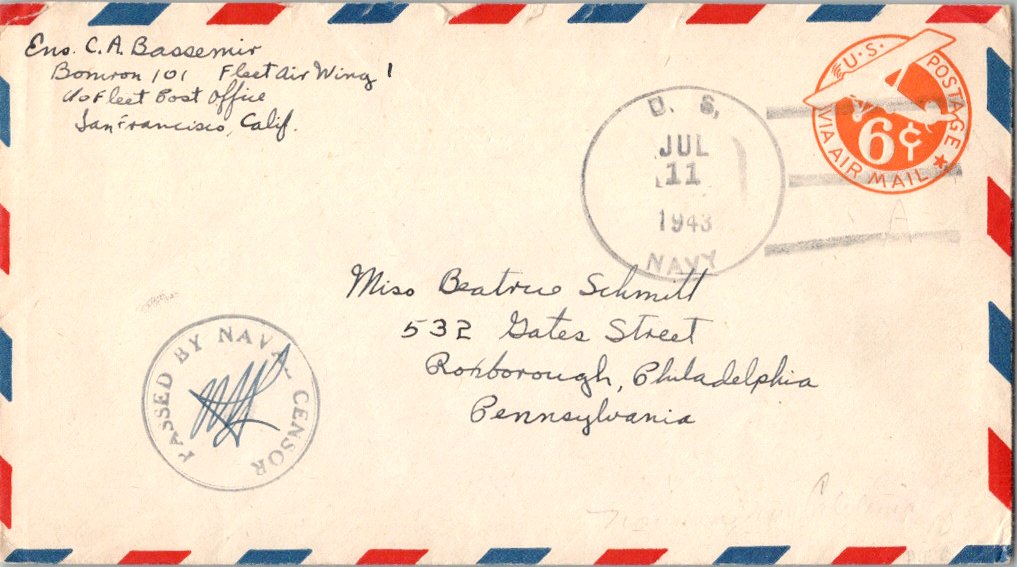 Ens. C. A. Bassemir
Bomron 101 Fleet Air Wing 1
c/o Fleet Post Office
San Francisco, Calif.
U.S. POSTAGE
VIA AIR MAIL
6¢
U. S.
JUL
11
1943
NAVY
Miss Beatrice Schmitt
532 Gates Street
Roxborough, Philadelphia
Pennsylvania
PASSED BY NAVAL CENSOR